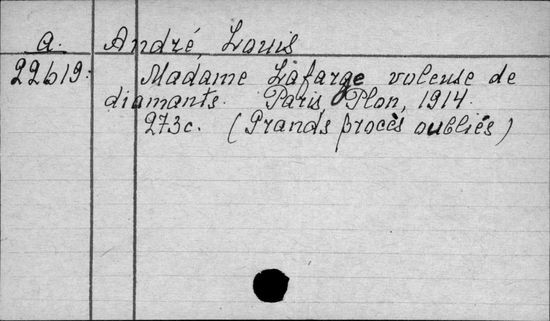 a. André, Louis
22619: Madame Lafarge voleuse de
diamants. Paris, Plon, 1914.
273c. (Grands procès oubliés)